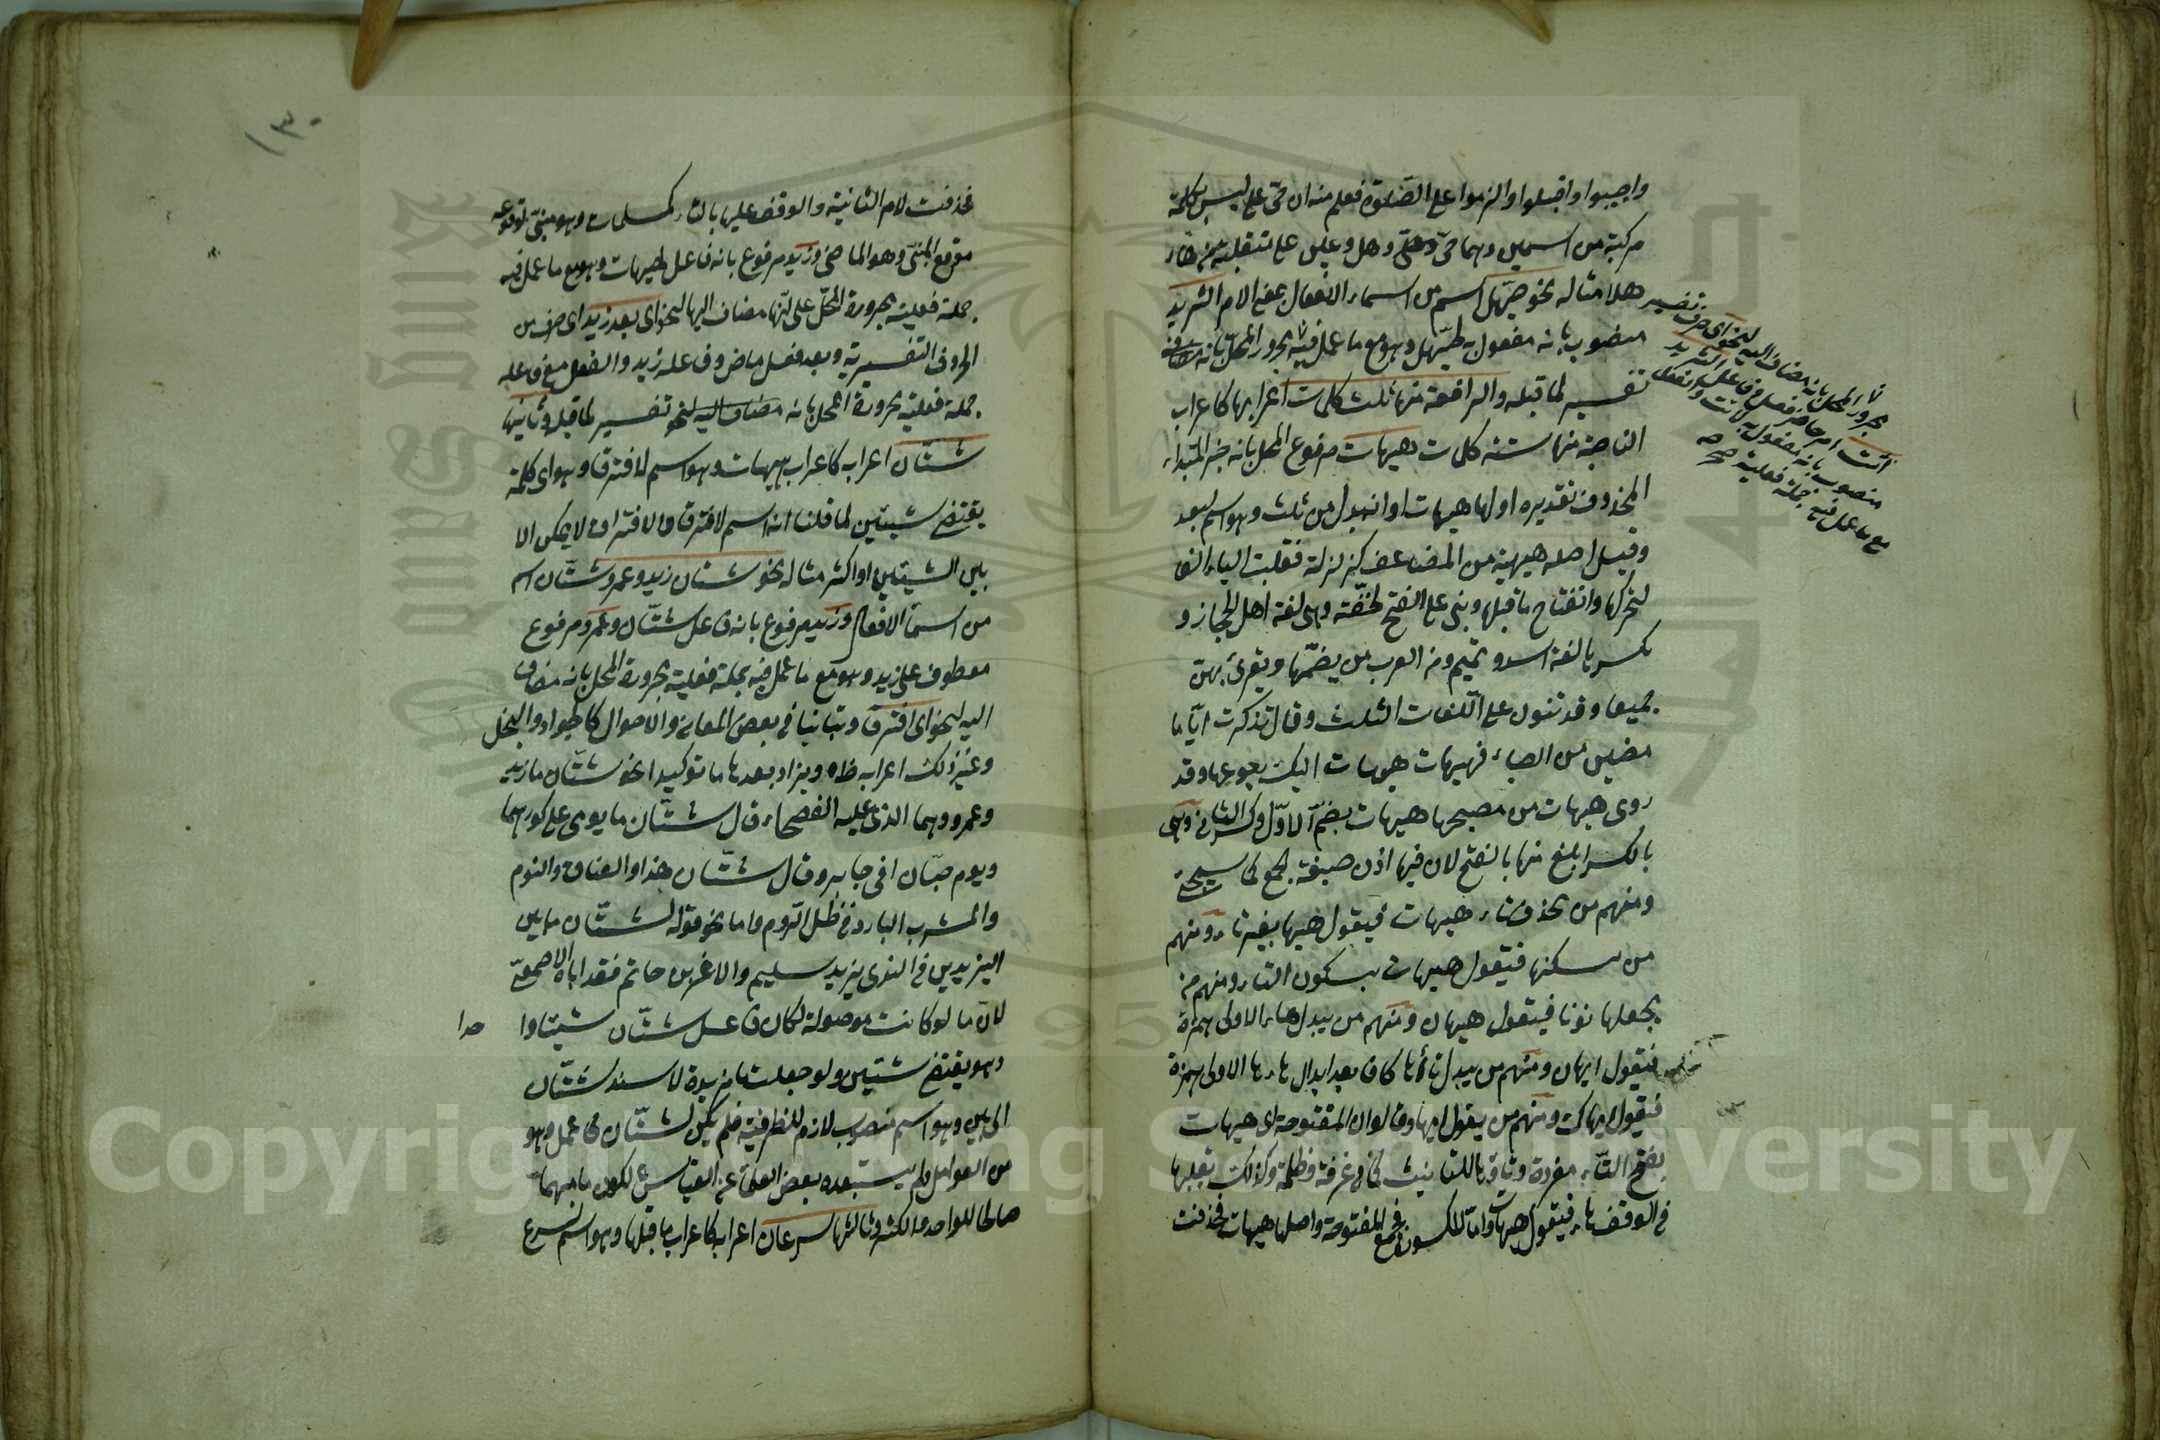 واجيبوا واقبلوا والزموا على الصلوة فعلم منه ان حيّ على ليس بكلمة
مركبة من اسمين وهما حيّ وعلى وهل وعلى على مستقلة من
هلا مثاله نحو حيّهل اسم من اسماء الافعال الثريد
منصوب بانه مفعول به لحيّهل وهو مع ما عمل فيه مجرور المحل بانه مضاف
تفسير لما قبله والرافعة منها ثلث كلمات اعرابها كاعراب
الناصبة منها ستة كلمات هيهات مرفوع المحل بانه خبر المبتداء
المحذوف تقديره اولها هيهات او انه بدل من ثلث وهو اسم لبعد
وقيل اصله هيهية من المضاعف كزلزلة فقلبت الياء الفا
لتحركها وانفتاح ما قبلها وبنى على الفتح لخفّته وهى لغة اهل الحجاز و
بكسر بالغة اسد و تميم ومن العرب من يضمّها ويقرئ بهنّ
جميعا وقد تنون على اللغات الثلث وقال تذكرت ايّاما
مضين من الصباء فهيهات هيهات اليك رجوعها وقد
روى هيهات من مصبحها هيهات بضم الاوّل وكسر الثانى وهى
بالكسر ابلغ منها بالفتح لان فيها اذن صيغة الجمع كما سيجئ
ومنهم من يحذف تاء هيهات فيقول هيها بغير تاء ومنهم
من يسكنها فيقول هيهات بسكون التاء ومنهم من
يجعلها نونا فيقول هيهان ومنهم من يبدل هاء الاولى بهمزة
فيقول ايهان ومنهم من يبدل تاءها كاف بعد ابدال هاء ها الاولى بهمزة
فيقول ايهاك ومنهم من يقول ايها وقالوا ان المفتوحة اى هيهات
بفتح التاء مفردة وتاؤها للتانيث كما فى غرفة وظلمة وكذلك يقلبها
فى الوقف هاء فيقول هيهاه وامّا المكسورة فجمع المفتوحة واصلها هيهيات فحذفت
مجرور المحل بانه مضاف اليه لنحو اى حرف تفسير
ائت امر حاضر فعل فاعل الثريد
منصوب بانه مفعول به لائت والفعل
مع ما عمل فيه جملة فعلية صح
١٣٠
فحذفت لام الثانية والوقف عليها بالتاء كمسلمات وهو مبنىّ لوقوعه
موقع المبنىّ وهو الماضى وزيد مرفوع بانه فاعل لهيهات وهو مع ما عمل فيه
جملة فعلية مجرورة المحلّ على انّها مضاف اليها لنحو اى بعد زيد اى حرف من
الحروف التفسيرية وبعد فعل ماض وفاعله زيد والفعل مع فاعله
جملة فعلية مجرورة المحل بانه مضاف اليه لنحو تفسير لما قبل وثانيها
شتّان اعرابه كاعراب هيهات وهو اسم لافترق وهو اى كلمة
يقتضى شيئين لما قلنا انه اسم لافترق والافتراق لا يمكن الا
بين الشيئين او اكثر مثاله نحو شتان زيد وعمرو شتّان اسم
من اسماء الافعال وزيد مرفوع بانه فاعل شتّان وعمرو مرفوع
معطوف على زيد وهو مع ما عمل فيه جملة فعلية مجرورة المحل بانه مضاف
اليه لنحو اى افترقا وتباينا فى بعض المعانى والاحوال كالجواد والبخل
وغير ذلك اعرابه ظاه ويزاد بعدها ما توكيدا نحو شتّان ما زيد
وعمرو وهما الذى عليه الفصحاء قال شتّان ما يومى على كورهما
ويوم حيّان اخى جابر وقال شتّان هذا والعناق والنوم
والمشرب البارد فى ظل الدّوم واما نحو قوله لشتّان ما بين
اليزيدين فى الندى يزيد سليم والاغر بن حاتم فقد اباه الاصمعىّ
لانّ ما لو كانت موصولة لكان فاعل شتّان شيئا وا
حدا
وهو يقتضى شيئين ولو جعلت ما مزيدة لاسند شتّان
الى بين وهو اسم منصوب لازم للظرفية فلم يكن لشتّان عمل وهو
من العوامل ولم يستبعده بعض العلماء عن القياس لكون ما مبهما
صالحا للواحد والكثير وثالثها سرعان اعرابه كاعراب ما قبلها وهو اسم لسرع
Copyright © King Saud University